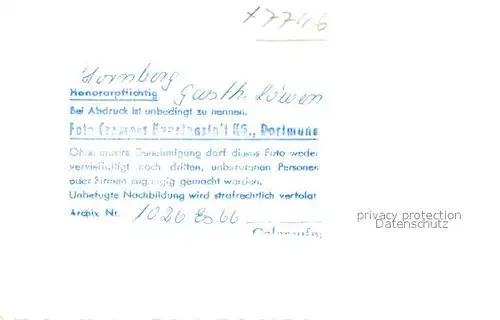 x7746
Hornberg
Honorarpflichtig Gasth. Löwen
Bei Abdruck ist unbedingt zu nennen.
Foto Cramers Kunstanstalt KG., Dortmund
Ohne unsere Genehmigung darf dieses Foto weder
vervielfältigt noch dritten, unberufenen Personen
oder Firmen zugängig gemacht werden.
Unbefugte Nachbildung wird strafrechtlich verfolgt
Archiv Nr. 1026 Es 66
privacy protection
Datenschutz